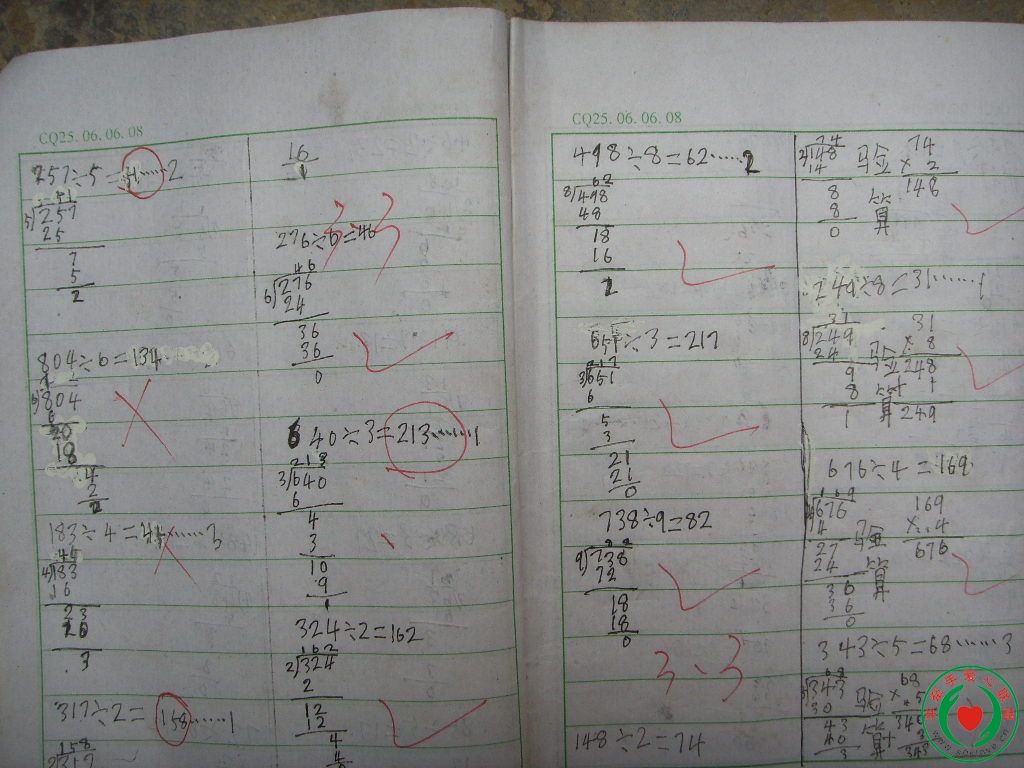 CQ25.06.06.08
257÷5=51……2
51
5)257
25
7
5
2
804÷6=134
6)804
6
20
18
4
2
2
183÷4=44……3
44
4)183
16
23
20
3
317÷2=158……1
158
2)317
16
1
3、3
276÷6=46
46
6)276
24
36
36
0
640÷3=213……1
213
3)640
6
4
3
10
9
1
324÷2=162
162
2)324
2
12
12
4
4
CQ25.06.06.08
498÷8=62……2
62
8)498
48
18
16
2
651÷3=217
217
3)651
6
5
3
21
21
0
738÷9=82
82
9)738
72
18
18
0
3、3
148÷2=74
74
2)148
14
8
8
0
验算
74
×2
148
249÷8=31……1
31
8)249
24
9
8
1
验算
31
×8
248
+1
249
676÷4=169
169
4)676
4
27
24
36
36
0
验算
169
×4
676
343÷5=68……3
68
5)343
30
43
40
3
验算
68
×5
340
+3
343